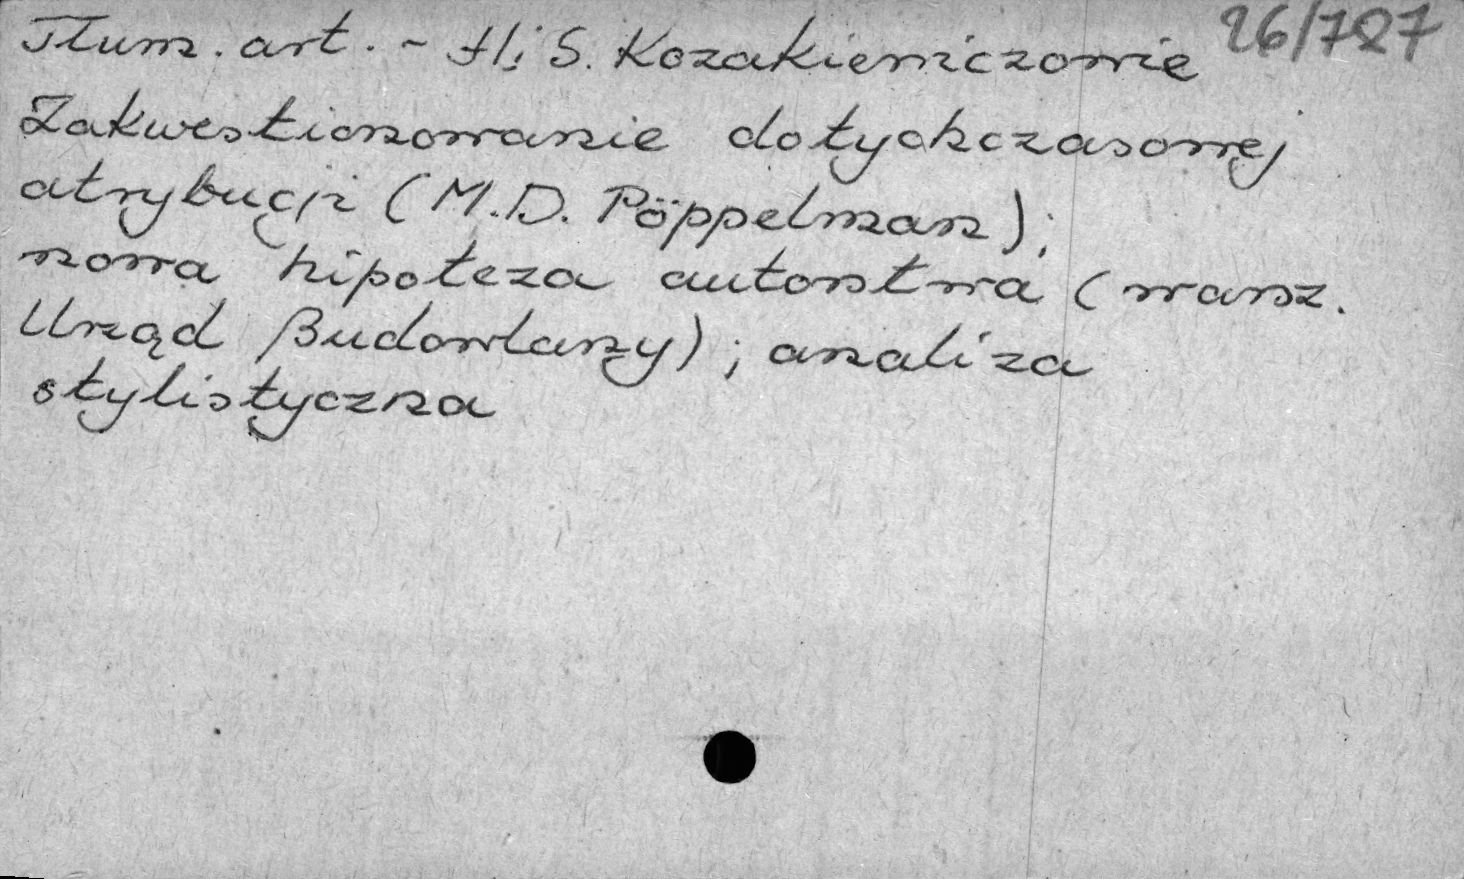 Tłum. art. - H. i S. Kozakiewiczowie 26/787
Zakwestionowanie dotychczasowej
atrybucji (M.D. Pöppelman);
nowa hipoteza autorstwa (warsz.
Urząd Budowlany); analiza
stylistyczna